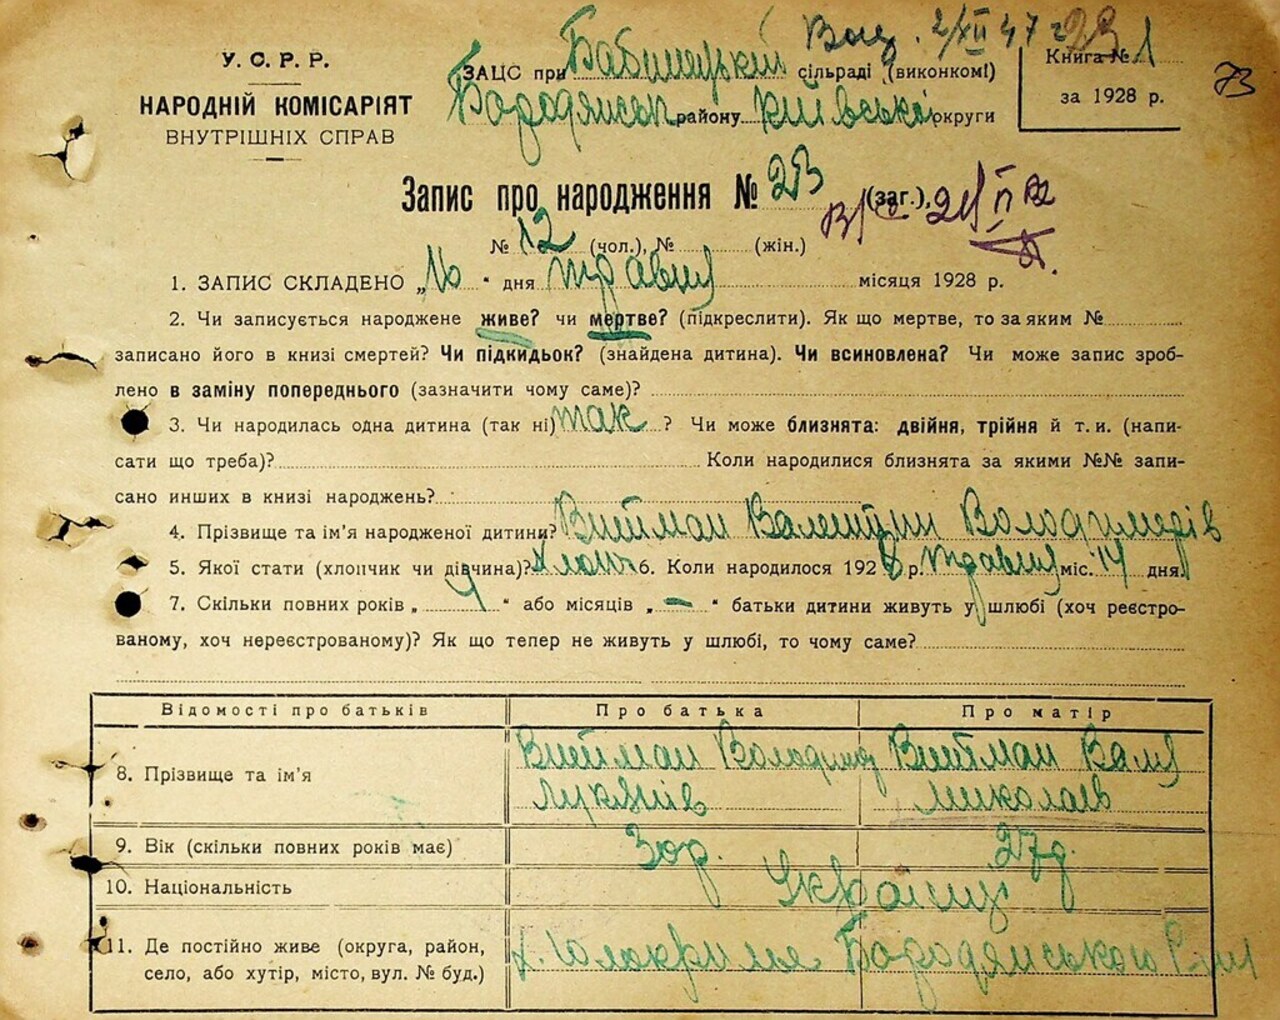 У. С. Р. Р.
НАРОДНІЙ КОМІСАРІЯТ
ВНУТРІШНІХ СПРАВ
2/XII 47
ЗАЦС при Бабинецькій сільраді (виконкомі)
Бородянськ району Київської округи
Книга № 1
за 1928 р.
73
Запис про народження № 23 (заг.),
№ 12 (чол.), № (жін.)
1. ЗАПИС СКЛАДЕНО „16" дня травня місяця 1928 р.
2. Чи записується народжене живе? чи мертве? (підкреслити). Як що мертве, то за яким №
записано його в книзі смертей? Чи підкидьок? (знайдена дитина). Чи всиновлена? Чи може запис зроб-
лено в заміну попереднього (зазначити чому саме)?
3. Чи народилась одна дитина (так ні) так ? Чи може близнята: двійня, трійня й т. и. (напи-
сати що треба)? Коли народилися близнята за якими №№ запи-
сано инших в книзі народжень?
4. Прізвище та ім'я народженої дитини? Вийтман Валентин Володимирів
5. Якої стати (хлопчик чи дівчина)? Хлопч 6. Коли народилося 1928 р. травня міс. 14 дня
7. Скільки повних років „ 4 " або місяців „ — " батьки дитини живуть у шлюбі (хоч реєстро-
ваному, хоч нереєстрованому)? Як що тепер не живуть у шлюбі, то чому саме?
Відомості про батьків Про батька Про матір
8. Прізвище та ім'я Вийтман Володимир Вийтман Валя
Лукянів Миколаєв
9. Вік (скільки повних років має) 30р. 27р.
10. Національність Українці
11. Де постійно живе (округа, район,
село, або хутір, місто, вул. № буд.) х. Бородянського